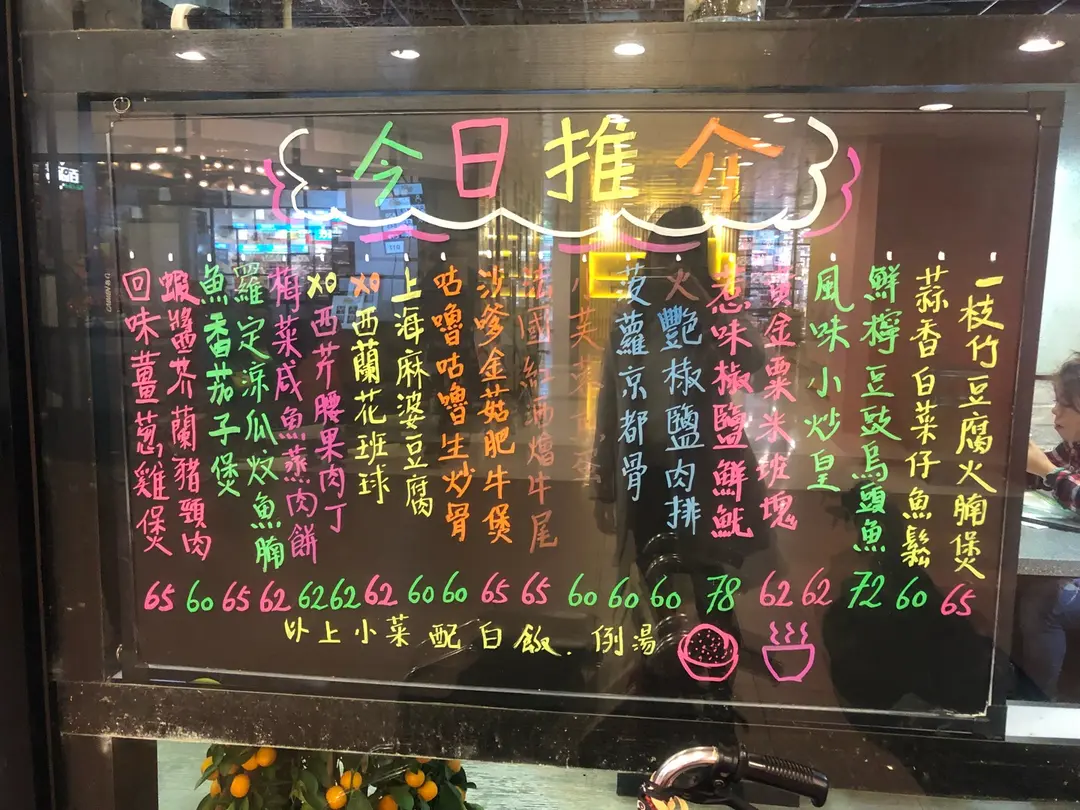 今日推介
一枝竹豆腐火腩煲 65
蒜香白菜仔魚鬆 60
鮮檸豆豉烏頭魚 72
風味小炒皇 62
黃金粟米班塊 62
惹味椒鹽鮮魷 78
火艷椒鹽肉排 60
菠蘿京都骨 60
小芙蓉蛋 60
法國紅酒燴牛尾 65
沙嗲金菇肥牛煲 65
咕嚕咕嚕生炒骨 60
上海麻婆豆腐 60
XO西蘭花班球 62
XO西芹腰果肉丁 62
梅菜咸魚蒸肉餅 62
羅定涼瓜炆魚腩 62
魚香茄子煲 65
蝦醬芥蘭豬頸肉 60
回味薑葱雞煲 65
以上小菜配白飯.例湯